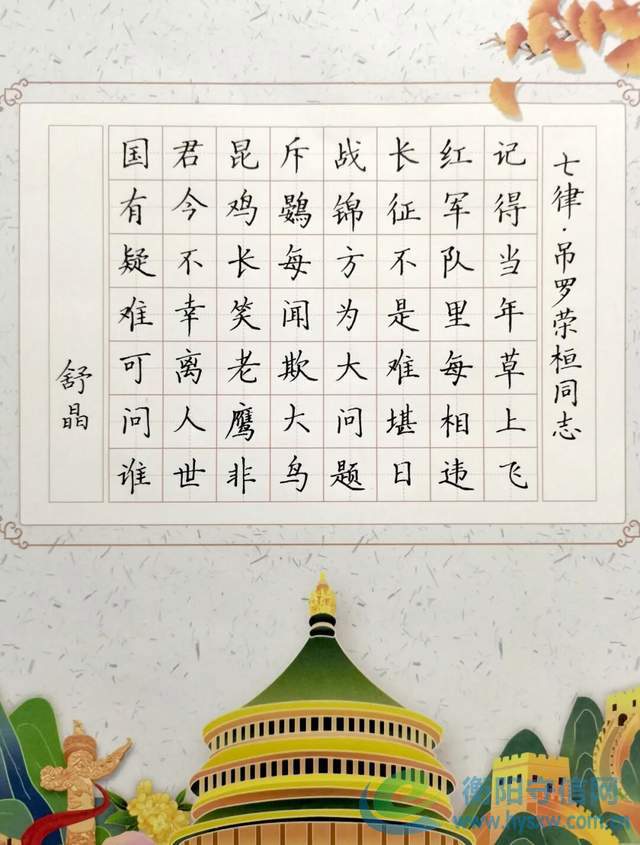 七律·吊罗荣桓同志
记得当年草上飞
红军队里每相违
长征不是难堪日
战锦方为大问题
斥鷃每闻欺大鸟
昆鸡长笑老鹰非
君今不幸离人世
国有疑难可问谁
舒晶
衡阳守信网
www.hysxw.com